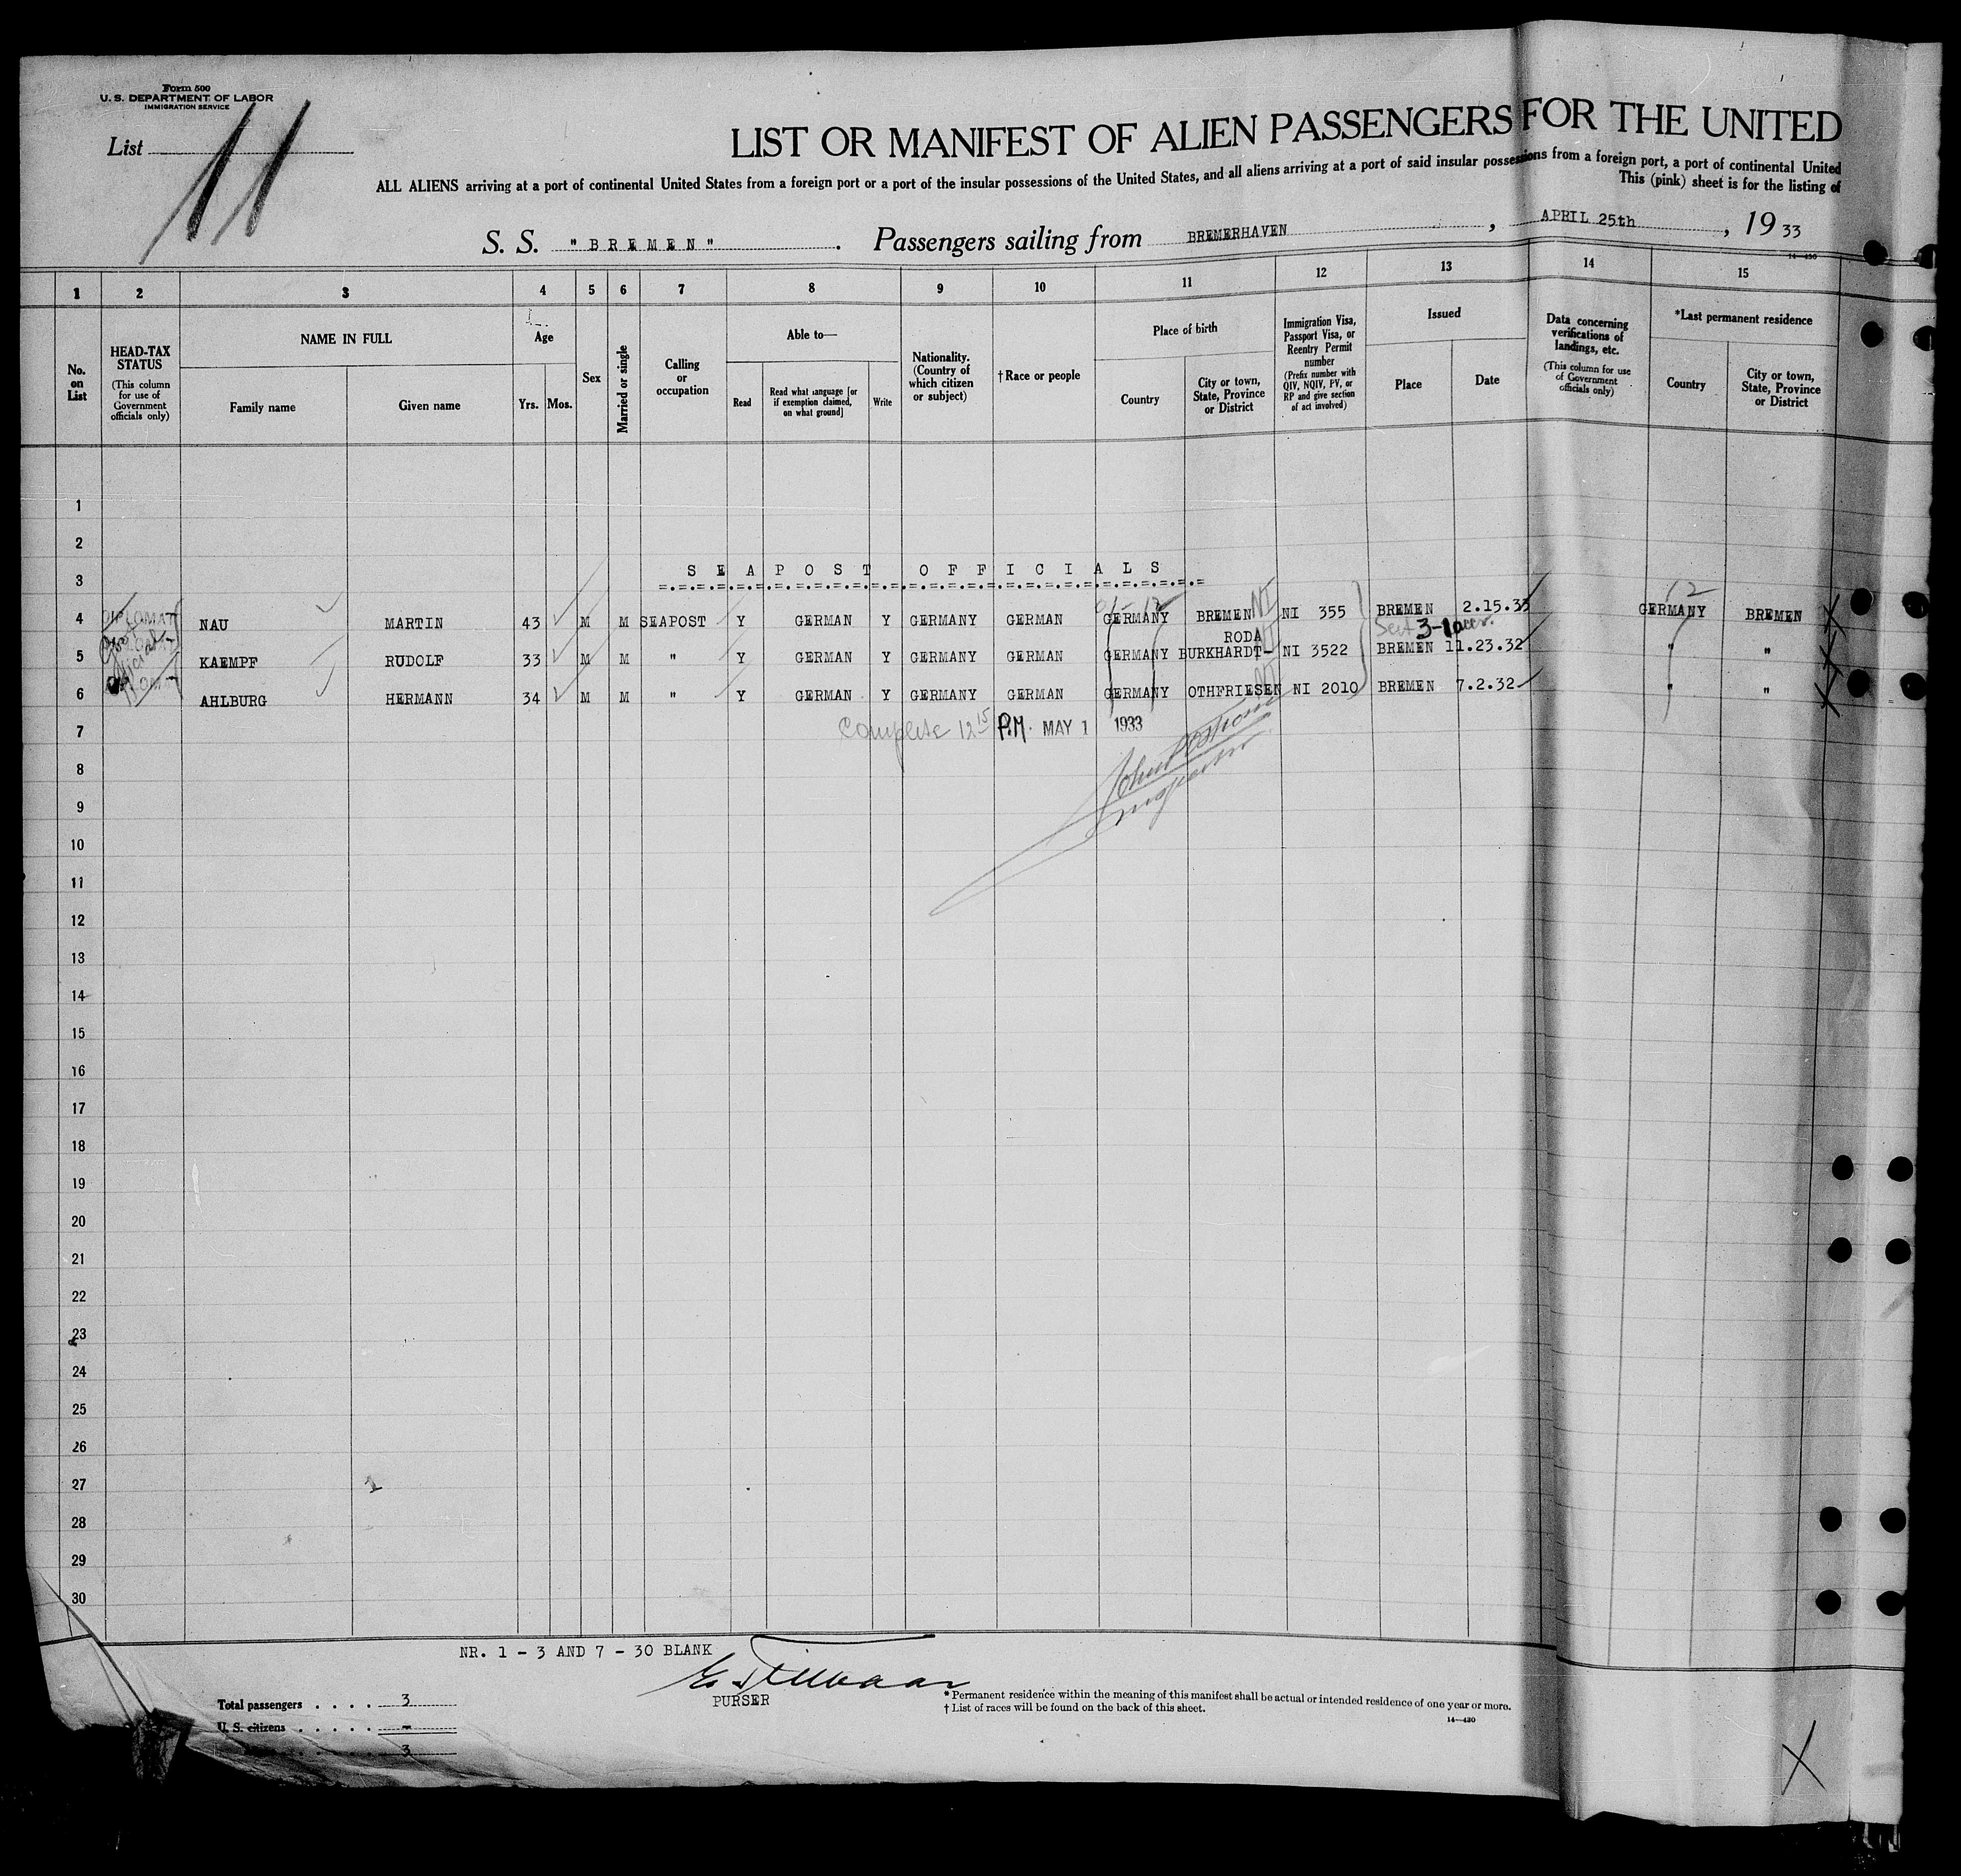 Form 500
U. S. DEPARTMENT OF LABOR
IMMIGRATION SERVICE
List 11
LIST OR MANIFEST OF ALIEN PASSENGERS FOR THE UNITED
ALL ALIENS arriving at a port of continental United States from a foreign port or a port of the insular possessions of the United States, and all aliens arriving at a port of said insular possessions from a foreign port, a port of continental United
This (pink) sheet is for the listing of
S. S. "BREMEN". Passengers sailing from BREMERHAVEN, APRIL 25th, 19 33
14—430
1 2 3 4 5 6 7 8 9 10 11 12 13 14 15
No. on List
HEAD-TAX STATUS
(This column for use of Government officials only)
NAME IN FULL
Family name
Given name
Age
Yrs. Mos.
Sex
Married or single
Calling or occupation
Able to—
Read
Read what language [or if exemption claimed, on what ground]
Write
Nationality. (Country of which citizen or subject)
† Race or people
Place of birth
Country
City or town, State, Province or District
Immigration Visa, Passport Visa, or Reentry Permit number
(Prefix number with QIV, NQIV, PV, or RP and give section of act involved)
Issued
Place
Date
Data concerning verifications of landings, etc.
(This column for use of Government officials only)
*Last permanent residence
Country
City or town, State, Province or District
1
2
3 SEAPOST OFFICIALS
4 DIPLOMAT NAU MARTIN 43 M M SEAPOST Y GERMAN Y GERMANY GERMAN GERMANY BREMEN NI NI 355 BREMEN 2.15.33 GERMANY BREMEN
12
Official
RODA
5 KAEMPF RUDOLF 33 M M " Y GERMAN Y GERMANY GERMAN GERMANY BURKHARDT- NI 3522 BREMEN 11.23.32 " "
6 AHLBURG HERMANN 34 M M " Y GERMAN Y GERMANY GERMAN GERMANY OTHFRIESEN NI 2010 BREMEN 7.2.32 " "
7 Complete 12 15 P.M. MAY 1 1933
John
Inspector
8
9
10
11
12
13
14
15
16
17
18
19
20
21
22
23
24
25
26
27
28
29
30
NR. 1 - 3 AND 7 - 30 BLANK
PURSER
Total passengers . . . . 3
U. S. citizens . . . . . -
3
* Permanent residence within the meaning of this manifest shall be actual or intended residence of one year or more.
† List of races will be found on the back of this sheet.
14—430